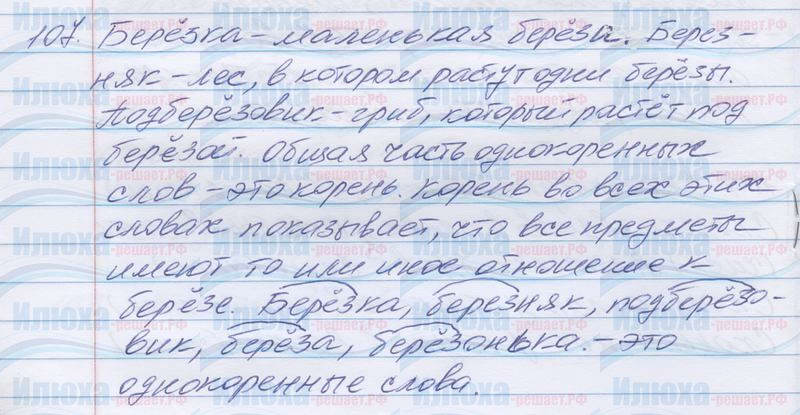 107. Берёзка – маленькая берёза. Берез-
няк – лес, в котором растут одни берёзы.
Подберёзовик – гриб, который растёт под
берёзой. Общая часть однокоренных
слов – это корень. Корень во всех этих
словах показывает, что все предметы
имеют то или иное отношение к
берёзе. Берёзка, березняк, подберёзо-
вик, берёза, берёзонька. – это
однокоренные слова.